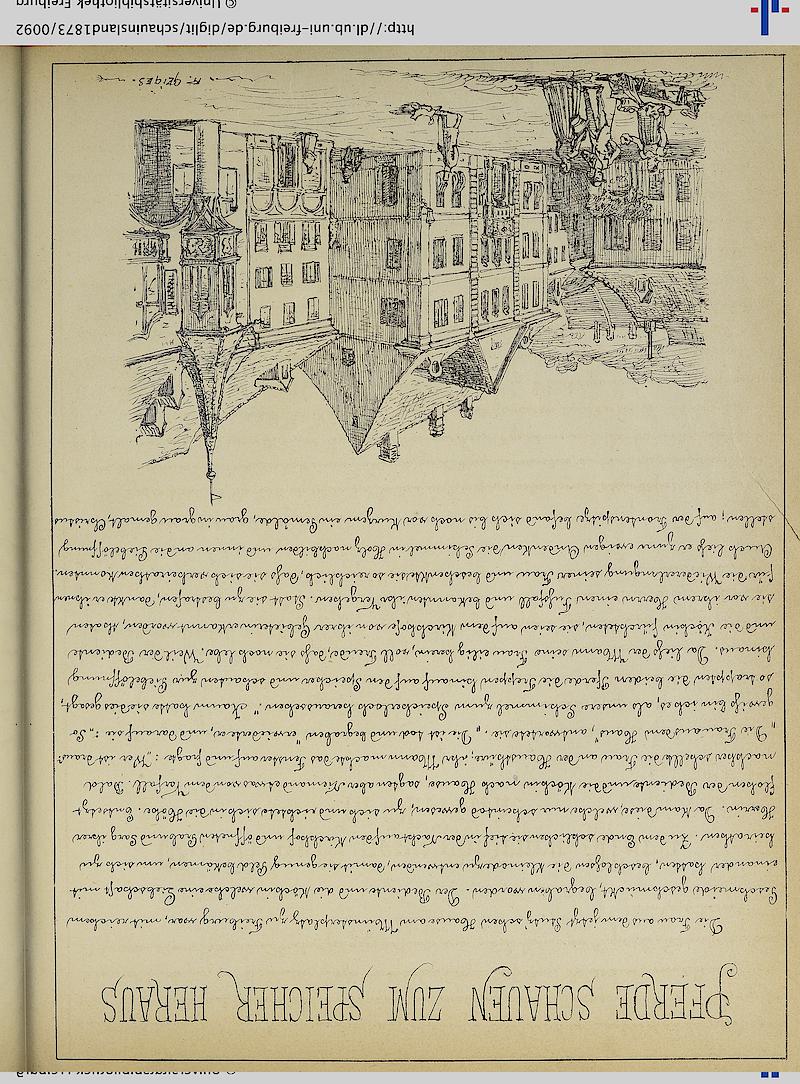 PFERDE SCHAUEN ZUM SPEICHER HERAUS
Die Frau aus dem jetzt Stutz'schen Hause am Münsterplatz zu Freiburg war, mit reichem
Geschmeide geschmückt, begraben worden. Der Bediente und die Köchin welche eine Liebschaft mit
einander hatten, beschloßen die Kleinode zu entwenden, damit sie genug Geld bekämen, um sich zu
heirathen. Zu dem Ende schlichen sie tief in der Nacht auf den Kirchhof und öffneten Grab und Sarg ihrer
Herrin. Da kam diese, welche nur scheintod gewesen, zu sich und richtete sich in die Höhe. Entsetzt
flohen der Bediente und die Köchin nach Hause, sagten aber Niemand etwas von dem Vorfall. Bald
nachher schellte die Frau an der Hausthüre, ihr Mann machte das Fenster auf und fragte: „Wer ist draus?"
„Die Frau aus dem Haus", antwortete sie. „Die ist tod und begraben" erwiederte er, „und darauf sie: „So
gewiß bin ich es, als unsere Schimmel zum Speicherloch herausschen." Kaum hatte sie dies gesagt,
so trappten die beiden Pferde die Treppen hinauf auf den Speicher und schauten zur Giebelöffnung
hinaus. Da ließ der Mann seine Frau eilig herein, voll Freude, daß sie noch lebe. Weil der Bediente
und die Köchin fürchteten, sie seien auf dem Kirchhofe von ihrer Gebieterin erkannt worden, thaten
sie vor ihrem Herrn einen Fußfall und bekannten ihr Vergehen. Statt sie zu bestrafen, dankte er ihnen
für die Wiedererlangung seiner Frau und beschenkte sie so reichlich, daß sie sich verheirathen konnten.
Auch ließ er zum ewigen Andenken die Schimmel in Holz nachbilden und innen an die Giebelöffnung
stellen; auf der Frontenspitze befand sich bis noch vor Kurzem ein Gemälde, grau in grau gemalt, Christus
F. GEIGES.
http://dl.ub.uni-freiburg.de/diglit/schauinsland1873/0092
© Universitätsbibliothek Freiburg